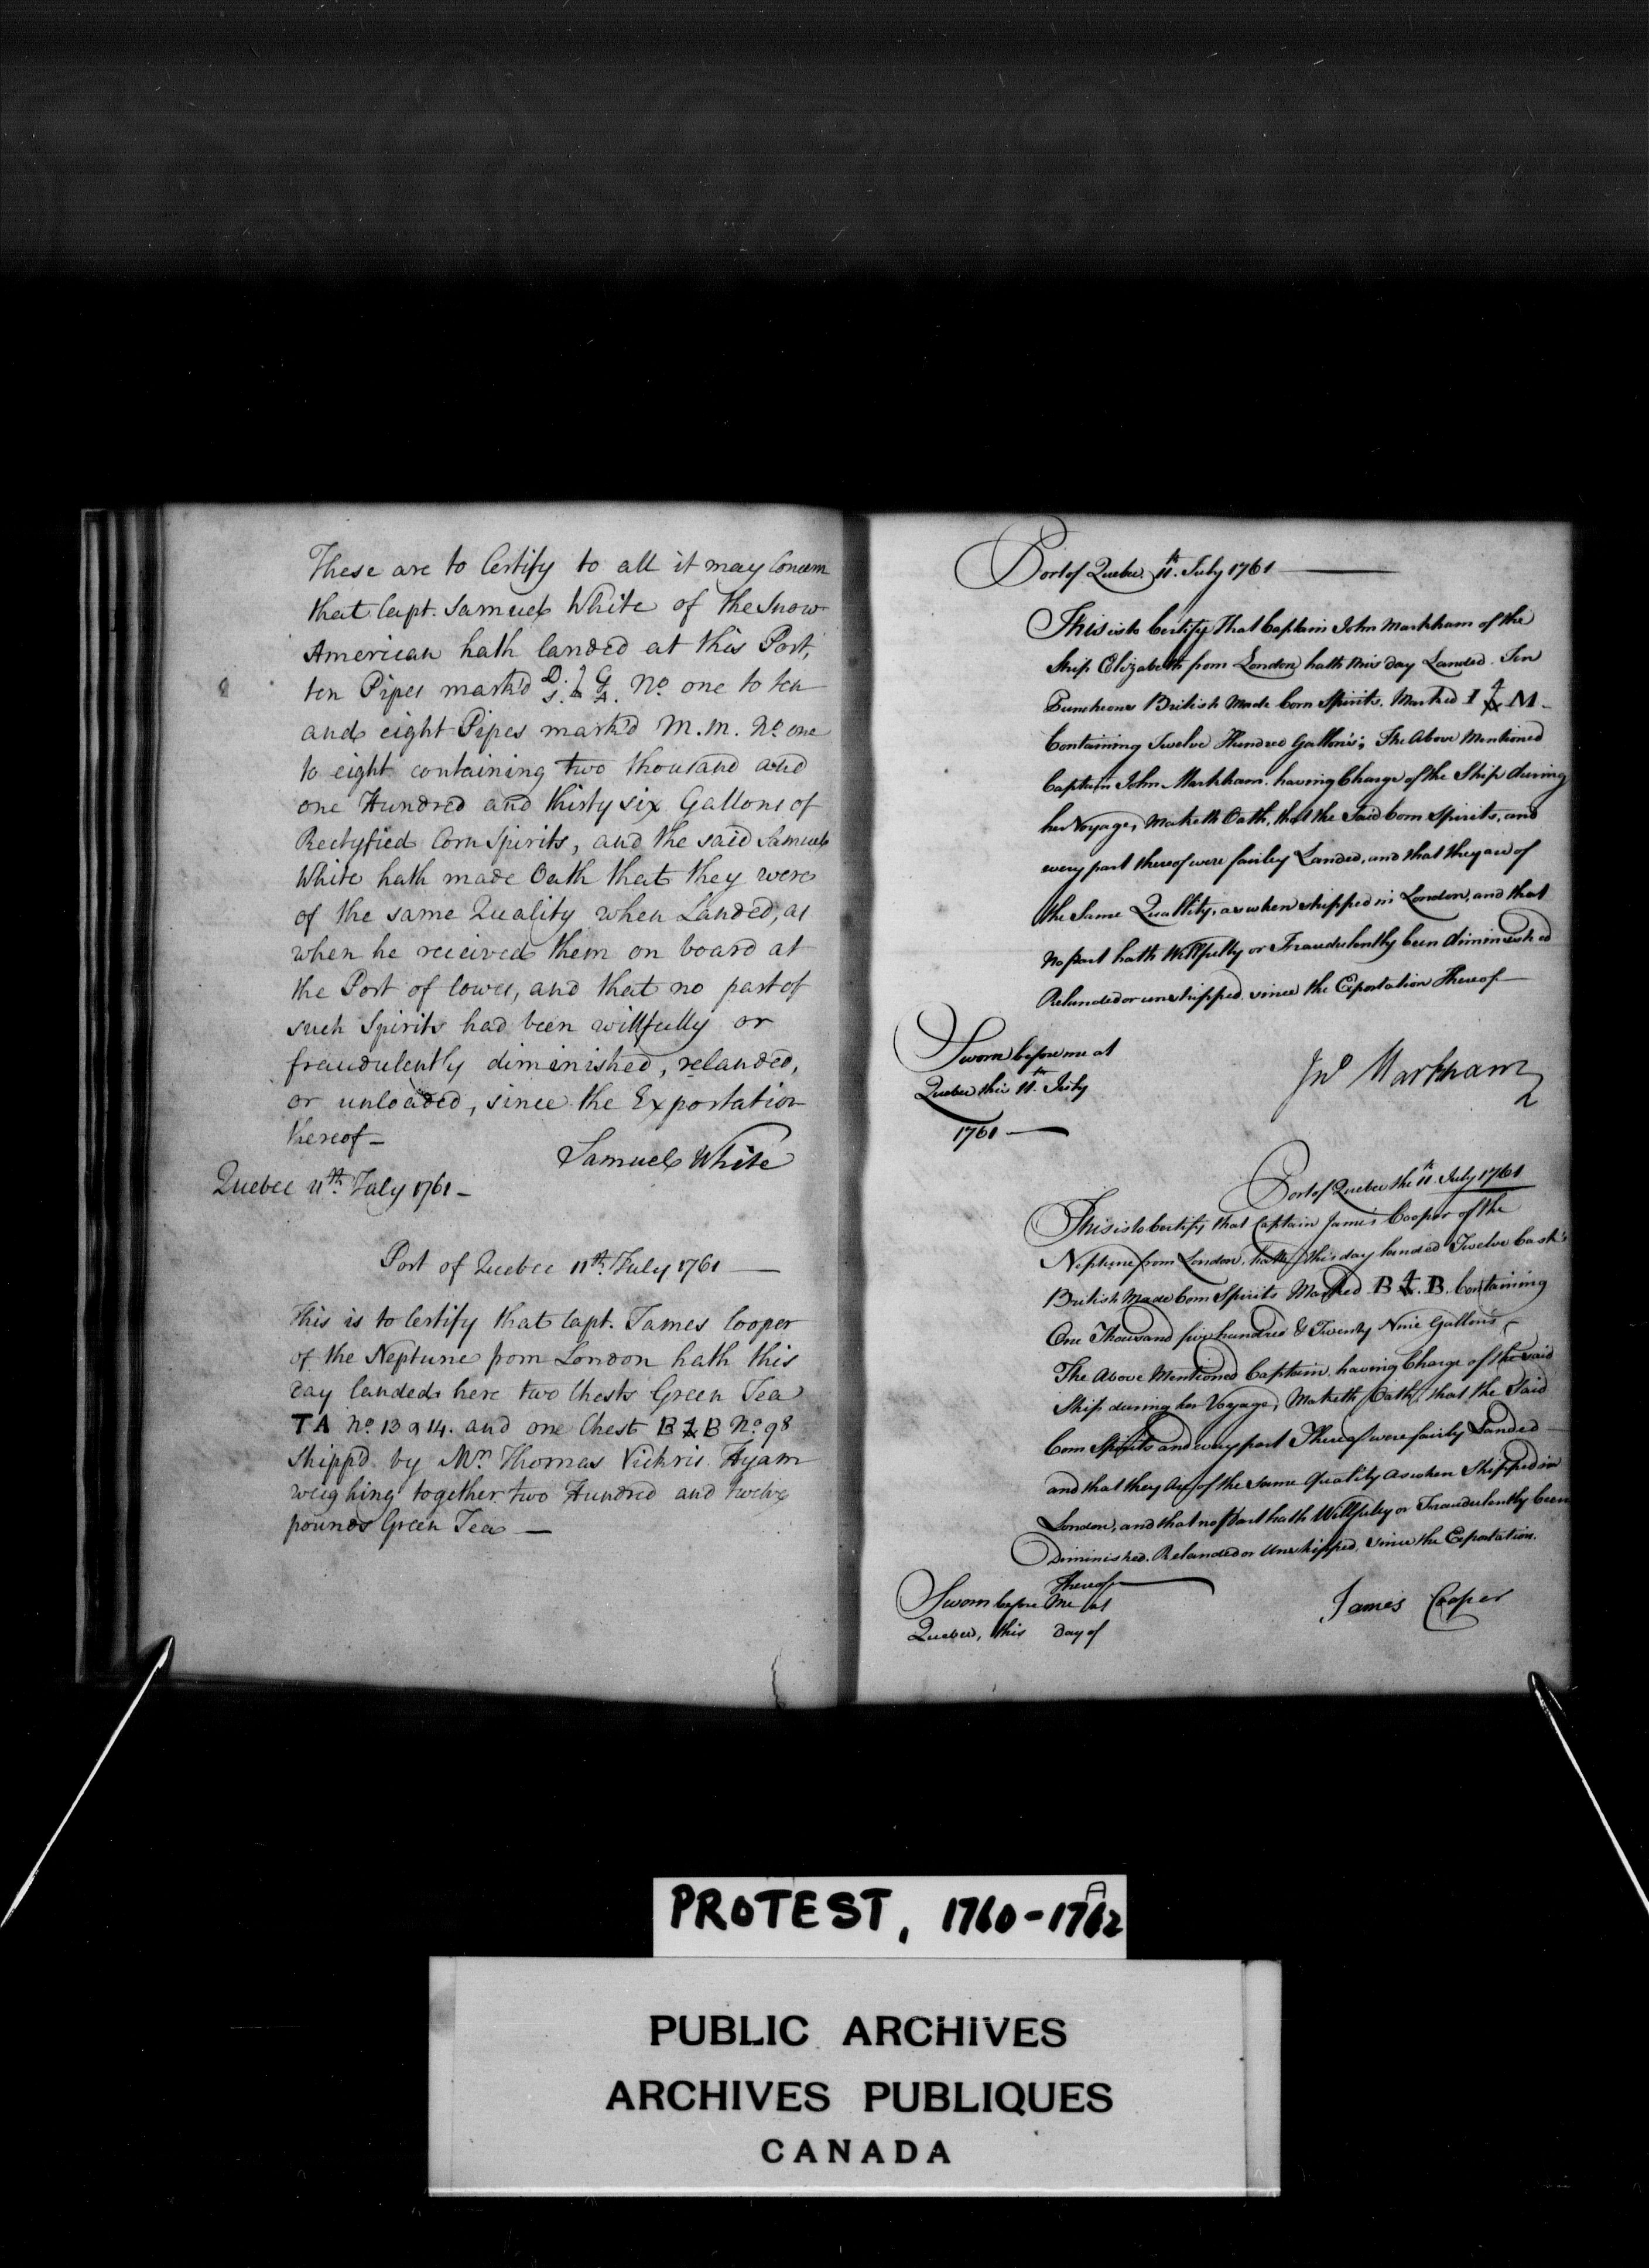 These are to Certify to all it may Concern
that Capt. Samuel White of the Snow
American hath landed at this Port,
ten Pipes mark'd D. G S. A. No. one to ten
and eight Pipes mark'd M.M. No. one
to eight containing two thousand and
one Hundred and thirty six Gallons of
Rectyfied Corn Spirits, and the said Samuel
White hath made Oath that they were
of the same Quality when Landed, as
when he received them on board at
the Port of Cowes, and that no part of
such Spirits had been willfully or
fraudulently diminished, relanded,
or unloaded, since the Exportation
thereof –
Samuel White
Quebec 11th. July 1761 –
Port of Quebec 11th. July 1761 —
This is to Certify that Capt. James Cooper
of the Neptune from London hath this
day landed here two Chests Green Tea
TA No. 13 a 14. and one Chest B & B No. 98
Shipp'd by Mr. Thomas Vickris Hyam
weighing together two Hundred and twelve
pounds Green Tea —
Port of Quebec 11th. July 1761 —
This is to Certify That Captain John Markham of the
Ship Elizabeth from London hath this day Landed Ten
Puncheons British Made Corn Spirits. Marked I 4 M –
Containing Twelve Hundred Gallon's; The Above Mentioned
Captain John Markham. having Charge of the Ship during
her Voyage, Maketh Oath, that the Said Corn Spirits, and
every part thereof were fairley Landed, and that they are of
the Same Quallity, as when shipped in London, and that
No Part hath Willfully or Fraudulently been diminished
Relanded or unshipped. since the Exportation Thereof —
Sworn before me at
Quebec this 11th. July
1761 —
Jno Markham
Port of Quebec the 11th. July 1761
This is to Certify that Captain James Cooper of the
Neptune from London, hath this day landed Twelve Cask's
British Made Corn Spirits Marked B 4. B. Containing
One Thousand five hundred & Twenty Nine Gallons, –
The Above Mentioned Captain, having Charge of the said
Ship during her Voyage, Maketh Oath, that the Said
Corn Spirits and every part Thereof were fairly Landed
and that they Are of the Same Quality as when Shipped in
London, and that no Part hath Willfuley or Fraudulently been
Diminished. Relanded or Unshipped, since the Exportation.
Thereof —
Sworn before Me at
Quebec, this day of
James Cooper
PROTEST, 1760-1762
PUBLIC ARCHIVES
ARCHIVES PUBLIQUES
CANADA